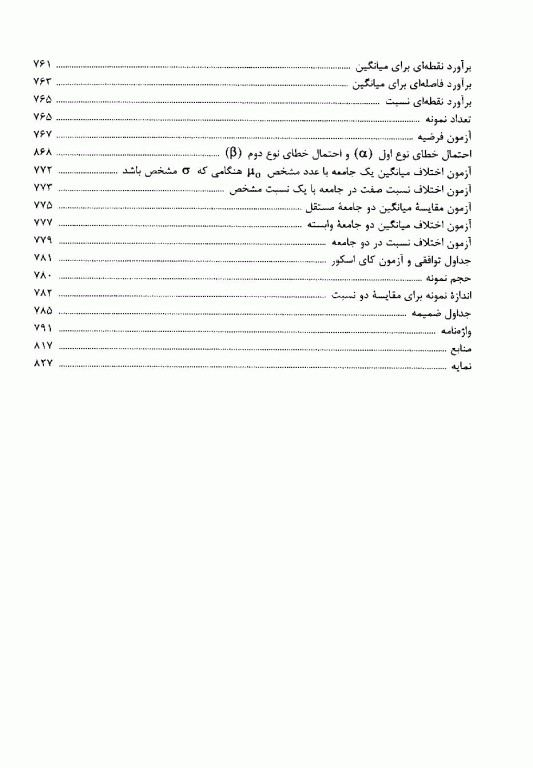 برآورد نقطه‌ای برای میانگین ........ ۷۶۱
برآورد فاصله‌ای برای میانگین ........ ۷۶۳
برآورد نقطه‌ای نسبت ........ ۷۶۵
تعداد نمونه ........ ۷۶۵
آزمون فرضیه ........ ۷۶۷
احتمال خطای نوع اول (α) و احتمال خطای نوع دوم (β) ........ ۸۶۸
آزمون اختلاف میانگین یک جامعه با عدد مشخص μ₀ هنگامی که σ مشخص باشد ........ ۷۷۲
آزمون اختلاف نسبت صفت در جامعه با یک نسبت مشخص ........ ۷۷۳
آزمون مقایسهٔ میانگین دو جامعهٔ مستقل ........ ۷۷۵
آزمون اختلاف میانگین دو جامعهٔ وابسته ........ ۷۷۷
آزمون اختلاف نسبت در دو جامعه ........ ۷۷۹
جداول توافقی و آزمون کای اسکور ........ ۷۸۱
حجم نمونه ........ ۷۸۰
اندازهٔ نمونه برای مقایسهٔ دو نسبت ........ ۷۸۲
جداول ضمیمه ........ ۷۸۵
واژه‌نامه ........ ۷۹۱
منابع ........ ۸۱۷
نمایه ........ ۸۲۷